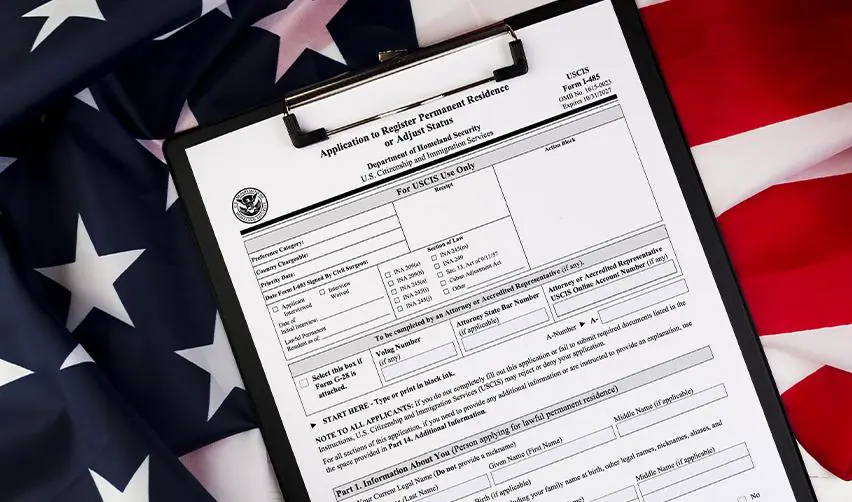 Application to Register Permanent Residence
or Adjust Status
Department of Homeland Security
U.S. Citizenship and Immigration Services
USCIS
Form I-485
OMB No. 1615-0023
Expires 10/31/2027
For USCIS Use Only
Receipt
Action Block
Preference Category:
Country Chargeable:
Priority Date:
Date Form I-693 Signed By Civil Surgeon:
Applicant
Interviewed
Interview
Waived
Date of
Initial Interview:
Lawful Permanent
Resident as of:
Section of Law
INA 209(a)
INA 209(b)
INA 245(a)
INA 245(i)
INA 245(j)
INA 245(m)
INA 249
Sec. 13, Act of 9/11/57
Cuban Adjustment Act
Other
To be completed by an Attorney or Accredited Representative (if any).
Select this box if
Form G-28 is
attached.
Volag Number
(if any)
Attorney State Bar Number
(if applicable)
Attorney or Accredited Representative
USCIS Online Account Number (if any)
A-Number ► A-
► START HERE - Type or print in black ink.
NOTE TO ALL APPLICANTS: If you do not completely fill out this application or fail to submit required documents listed in the
Instructions, U.S. Citizenship and Immigration Services (USCIS) may reject or deny your application.
For all sections of this application, if you need to provide any additional information or are instructed to provide an explanation, use
the space provided in Part 14. Additional Information.
Part 1. Information About You (Person applying for lawful permanent residence)
Your Current Legal Name (Do not provide a nickname)
(Last Name)
Given Name (First Name)
Middle Name (if applicable)
Birth (if applicable)
including your family name at birth, other legal names, nicknames, aliases, and
Middle Name (if applicable)
No